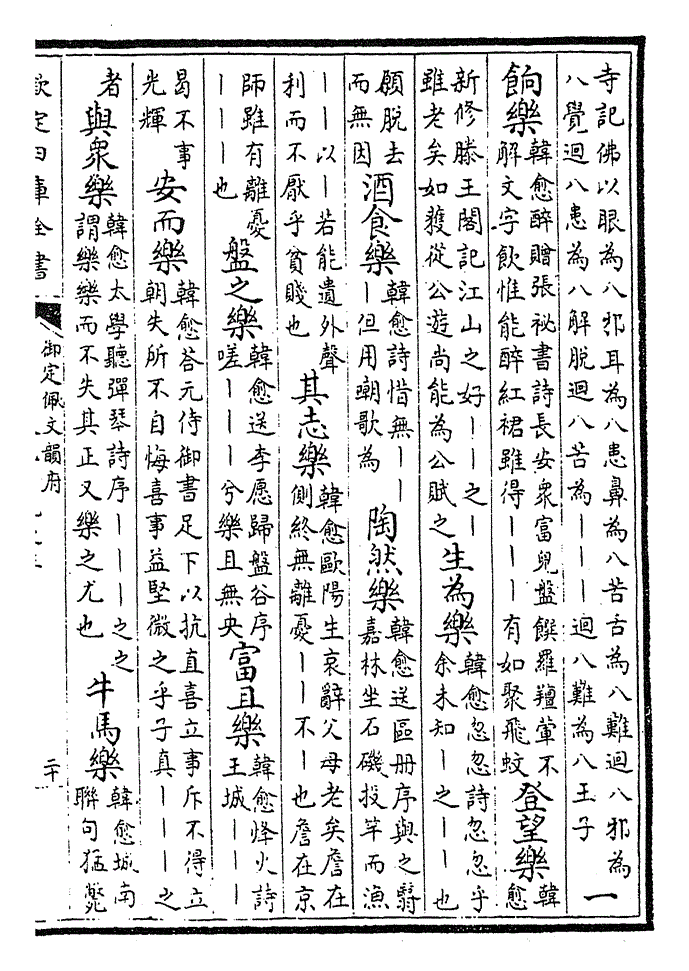 寺記佛以眼為八邪耳為八患鼻為八苦舌為八難迴八邪為
八覺迴八患為八解脫迴八苦為丨丨丨迴八難為八王子
一
餉樂
韓愈醉贈張祕書詩長安衆富兒盤饌羅羶葷不
解文字飲惟能醉紅裙雖得丨丨丨有如聚飛蚊
登望樂
韓
愈
新修滕王閣記江山之好丨丨之丨
雖老矣如獲從公遊尚能為公賦之
生為樂
韓愈忽忽詩忽忽乎
余未知丨之丨丨也
願脫去
而無因
酒食樂
韓愈詩惜無丨丨
丨但用嘲歌為
陶然樂
韓愈送區册序與之翳
嘉林坐石磯投竿而漁
丨丨以丨若能遺外聲
利而不厭乎貧賤也
其志樂
韓愈歐陽生哀辭父母老矣詹在
側終無離憂丨丨不丨也詹在京
師雖有離憂
丨丨丨也
盤之樂
韓愈送李愿歸盤谷序
嗟丨丨丨兮樂且無央
富且樂
韓愈烽火詩
王城丨丨丨
曷不事
光輝
安而樂
韓愈荅元侍御書足下以抗直喜立事斥不得立
朝失所不自悔喜事益堅微之乎子真丨丨丨之
者
與衆樂
韓愈太學聽彈琴詩序丨丨丨之之
謂樂樂而不失其正又樂之尤也
牛馬樂
韓愈城南
聯句猛斃
欽定四庫全書
御定佩文韻府
二十